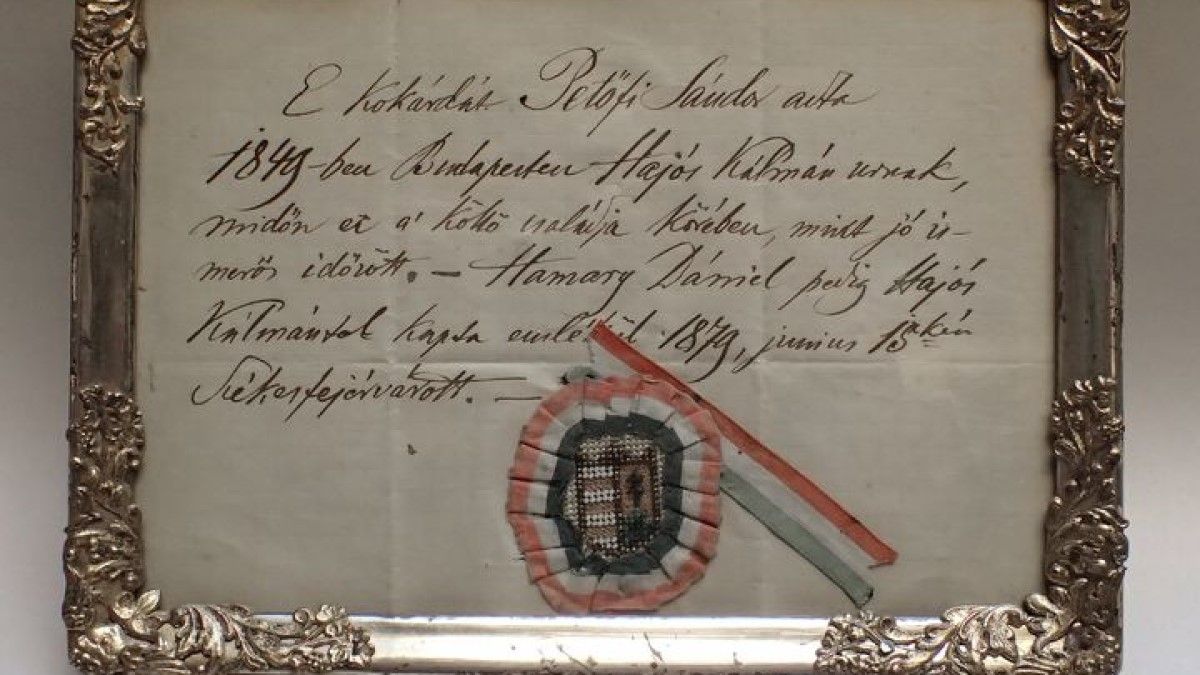 E kokárdát Petőfi Sándor adta
1849-ben Budapesten Hajós Kálmán urnak,
midőn ez a' költő családja körében, mint jó is-
merős időzött. — Hamary Dániel pedig Hajós
Kálmántol kapta emlékül 1879, junius 15kén
Székesfejérvárott. —